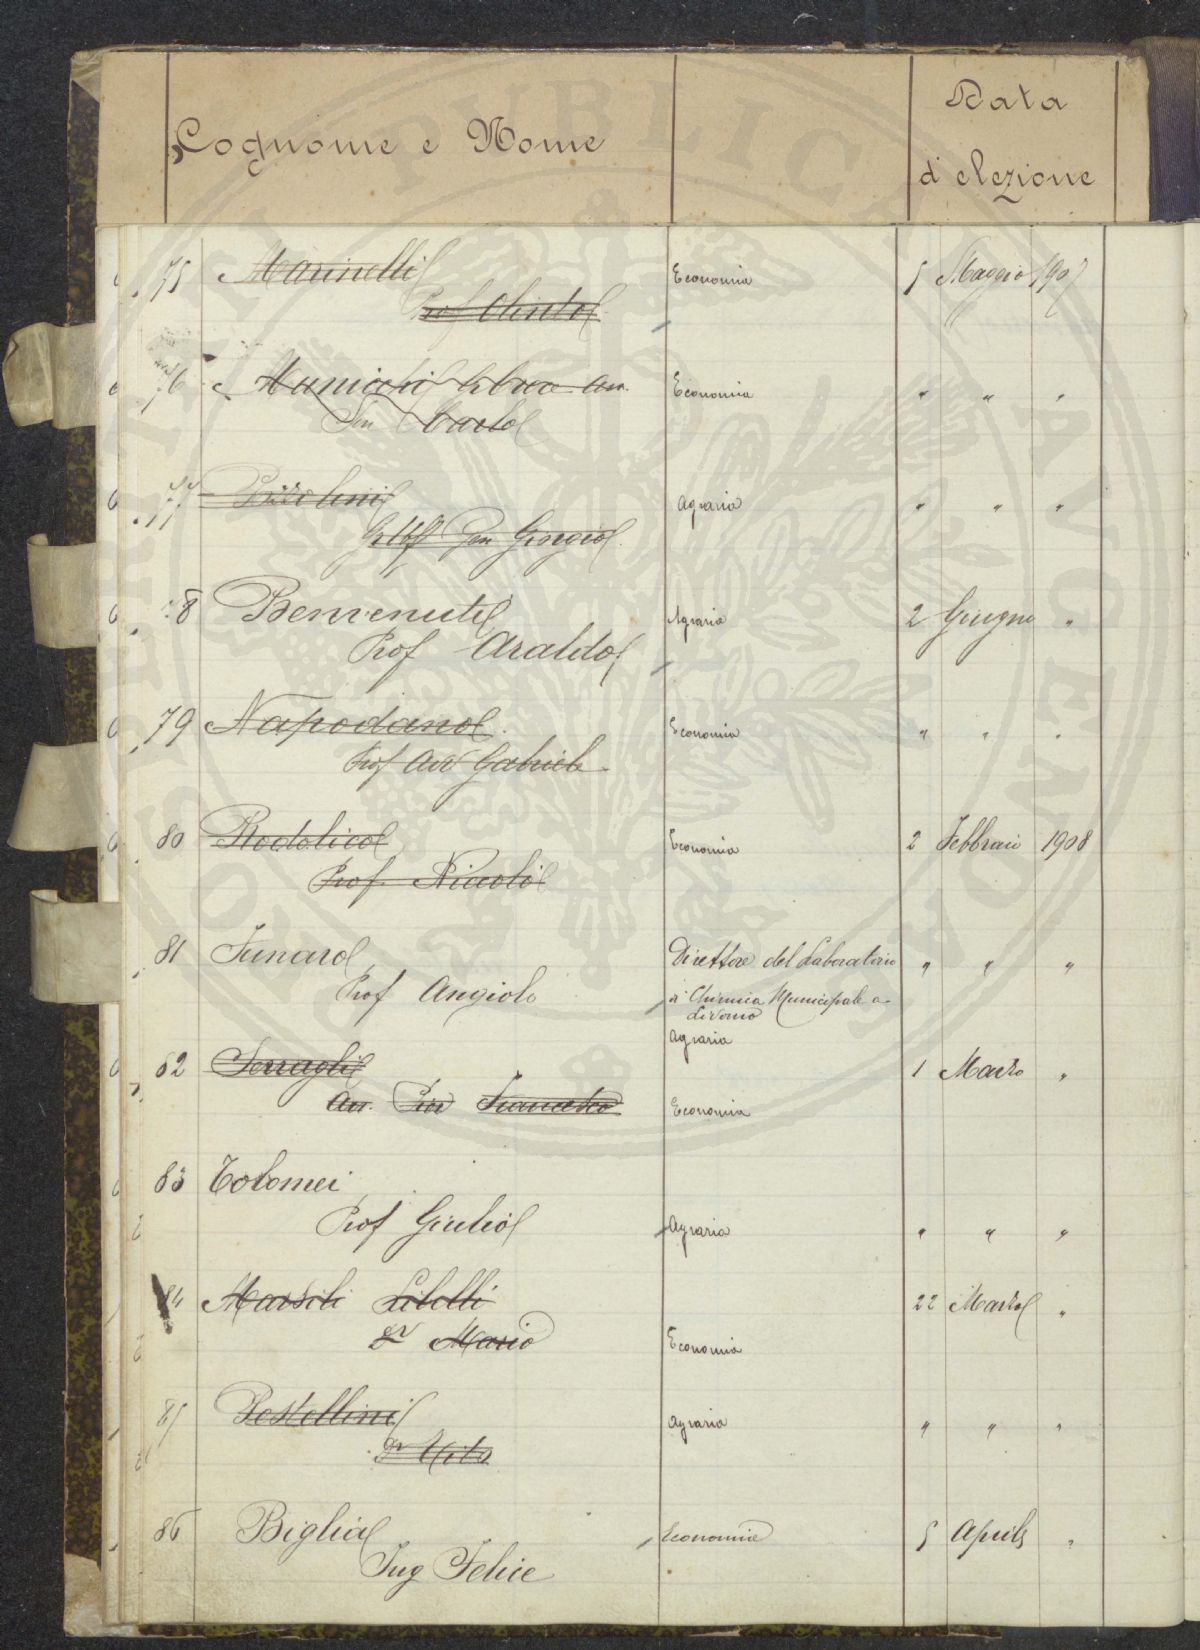 Cognome e Nome
Data
d'elezione
75 Marinelli Economia 5 Maggio 1907
Prof Olinto
76 Municchi Economia " " "
Sen Carlo
77 Pizzolini Agraria " " "
Giorgio
78 Benvenuti Agraria 2 Giugno "
Prof Araldo
79 Napodano Economia " " "
Prof Avv Gabriele
80 Rodolico Economia 2 Febbraio 1908
Prof. Niccolò
81 Funaro Direttore del Laboratorio " " "
Prof Angiolo di Chimica Municipale a
Livorno
Agraria
82 Serragli 1 Marzo "
Francesco Economia
83 Tolomei
Prof Giulio Agraria " " "
84 Marsili Libelli 22 Marzo "
Dr Mario Economia
85 Pestellini Agraria " " "
Dr Tito
86 Biglia Economia 5 Aprile "
Ing Felice